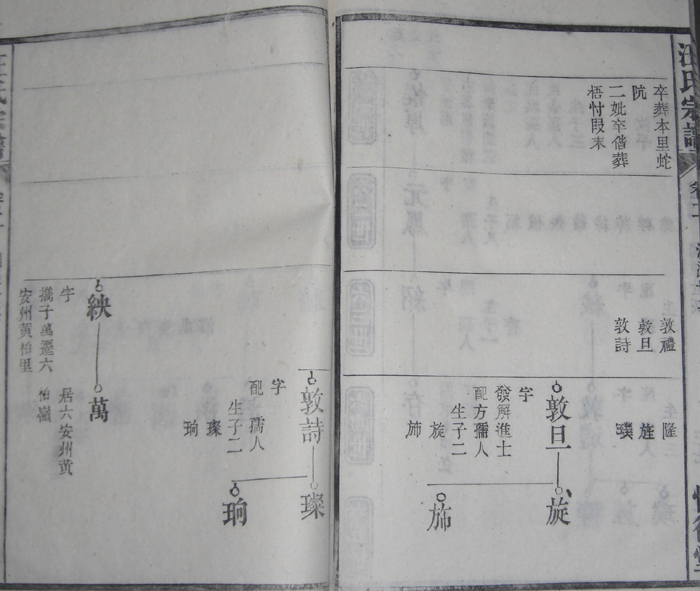 汪氏宗譜
卒葬本里蛇
阬
二妣卒偕葬
梧忖叚末
敦禮
敦旦
敦詩
隆
旌
璞
敦旦
旋
字
發解進士
配方孺人
生子二
旋
斾
斾
敦詩
璨
字
配 孺人
生子二
璨
珦
珦
紻
萬
字
攜子萬遷六
安州黄柏里
居六安州黄
柏嶺